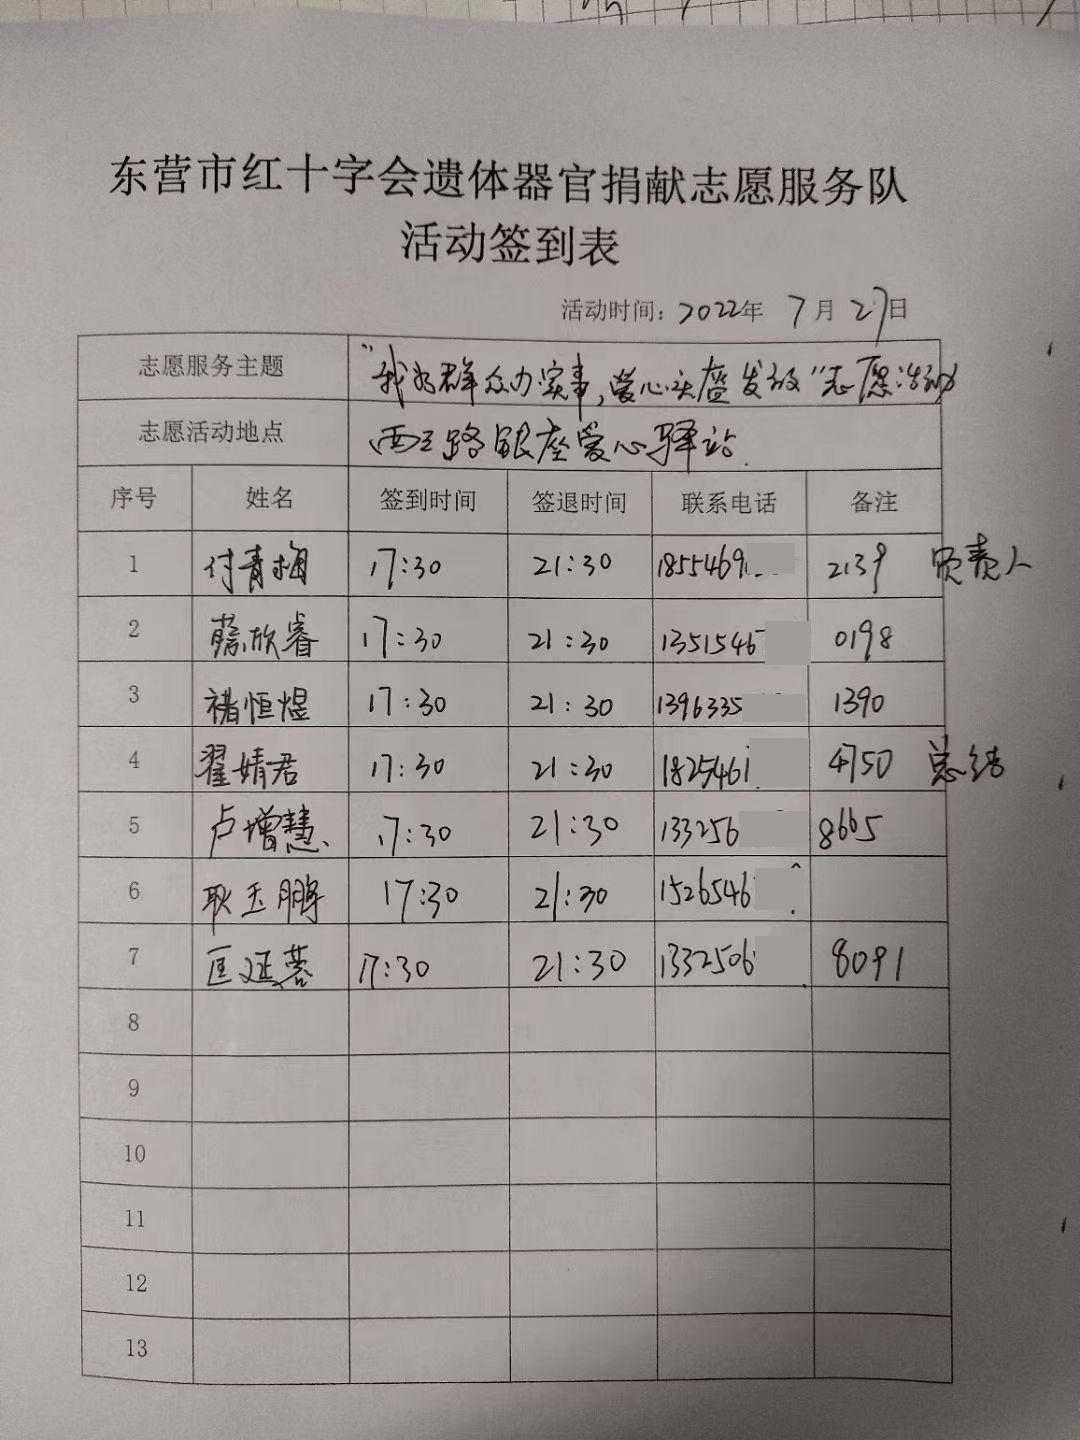 东营市红十字会遗体器官捐献志愿服务队
活动签到表
活动时间：2022年 7月27日
志愿服务主题 "我为群众办实事，爱心头盔发放"志愿活动
志愿活动地点 西三路银座爱心驿站
序号 姓名 签到时间 签退时间 联系电话 备注
1 付青梅 17:30 21:30 1855469 2139 负责人
2 欣睿 17:30 21:30 1351546 0198
3 褚恒煜 17:30 21:30 1396335 1390
4 翟婧君 17:30 21:30 1825461 4750 总结
5 卢增慧 17:30 21:30 133256 8665
6 耿玉鹏 17:30 21:30 1526546
7 匡延蓉 17:30 21:30 1332506 8091
8
9
10
11
12
13